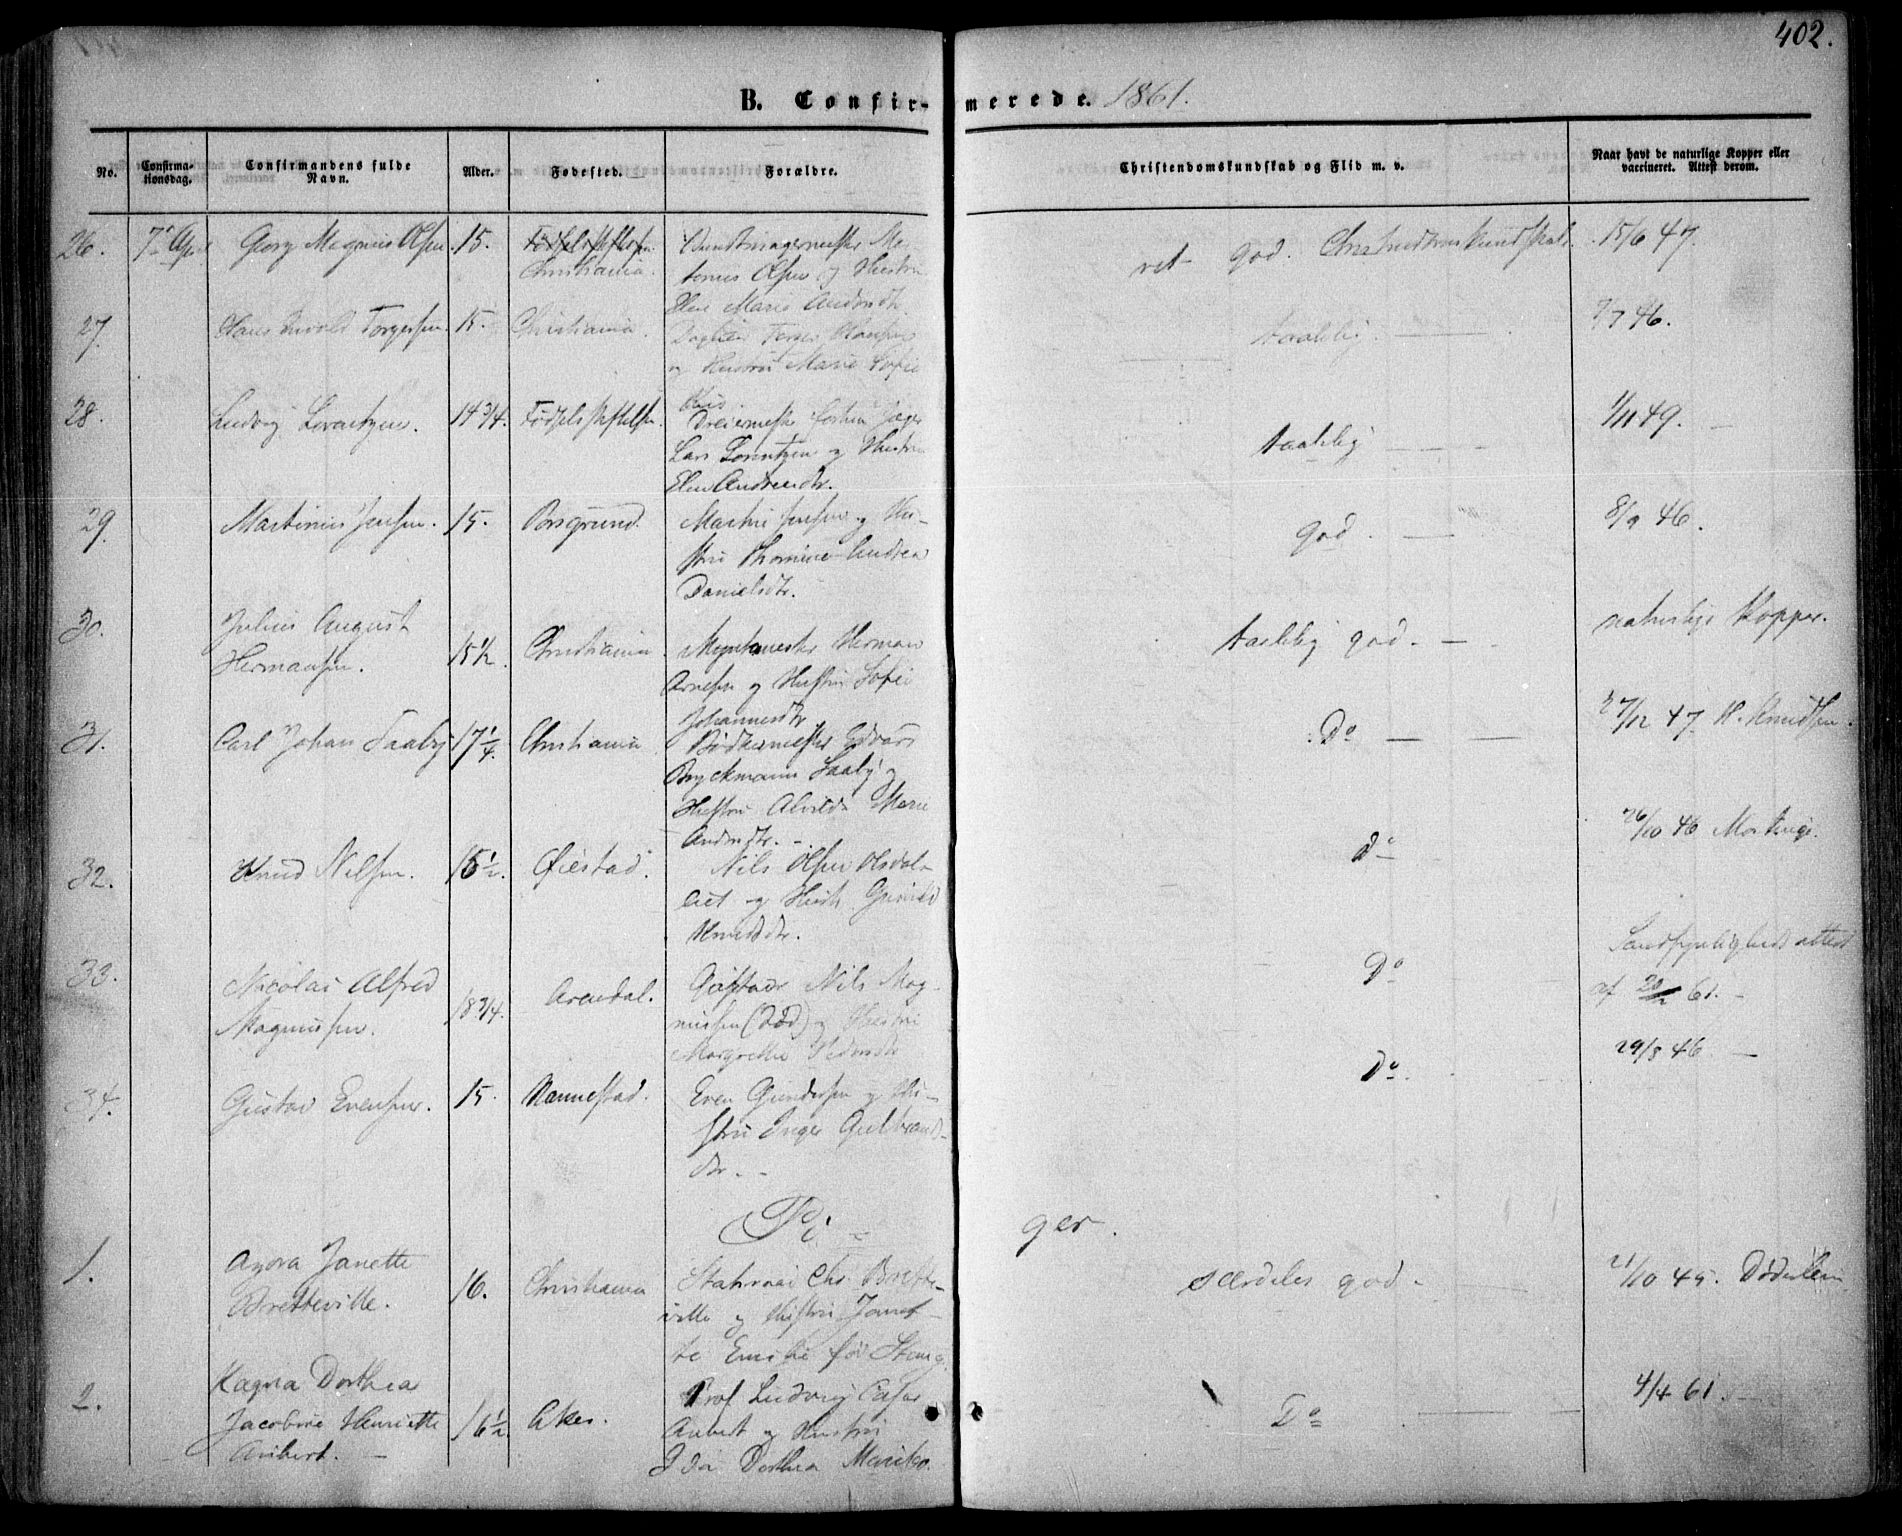 402.
B. Confirmerede. 1861.
No.
Confirma-
tionsdag.
Confirmandens fulde
Navn.
Alder.
Fødested.
Forældre.
Christendomskundskab og Flid m. v.
Naar havt de naturlige Kopper eller
vaccineret. Attest derom.
26. 7de Apr. Georg Magnus Olsen. 15. Fødselsstiftelsen
Christiania.
Olsen og Hustru
Elen Marie Andersdtr.
ret god. Christendomskundskab. 15/6 47.
27. Hans Torgersen. 15. Christiania.
og Hustru Marie Sofie
taalelig. 7/7 46.
28. Ludvig Lorentzen. 14 3/4. Fødselsstiftelsen.
Lars Lorentzen og Hustru
Elen Andreasdtr.
taalelig 1/11 49.
29. Martinius Jensen. 15. Porsgrund.
Martin Jensen og Hu-
stru Thomine Andrea
Danielsdtr.
god. 8/9 46.
30. Julius August
Hermansen. 15 1/2. Christiania.
Herman
Arnesen og Hustru Sofie
Johannesdtr
taalelig god. naturlige Kopper.
31. Carl Johan Saaby 17 1/4. Christiania
Bødkermester Edvard
Bryckmann Saaby og
Hustru Alvilde Marie
Andersdtr.
Do 27/12 47. K. Knudsen.
32. Knud Nilsen. 15 1/2. Øiestad.
Nils Olsen
og Hustr. Gunild
Knudsdtr.
Do 26/10 46
33. Nicolai Alfred
Magnussen. 18 3/4. Arendal.
Nils Mag-
nussen (død) og Hustru
Margrethe Pedersdtr
Do
Sandsynligheds attest
af 20/2 61.
34. Gustav Evensen. 15. Nannestad.
Even Gundersen og Hu-
stru Inger Gulbrands-
dtr.
Do. 29/8 46
Pi- ger.
1. Agora Janette
Bretteville. 16. Christiania
Statsraad Chr. Brette-
ville og Hustru Janet-
te Emilie fød Stang.
særdeles god. 21/10 45. Døderlein
2. Ragna Dorthea
Jacobine Henriette
Aubert. 16 1/2. Aker.
Prof. Ludvig Cæsar
Aubert og Hustru
Ida Dorthea Mariboe.
Do 4/4 61.